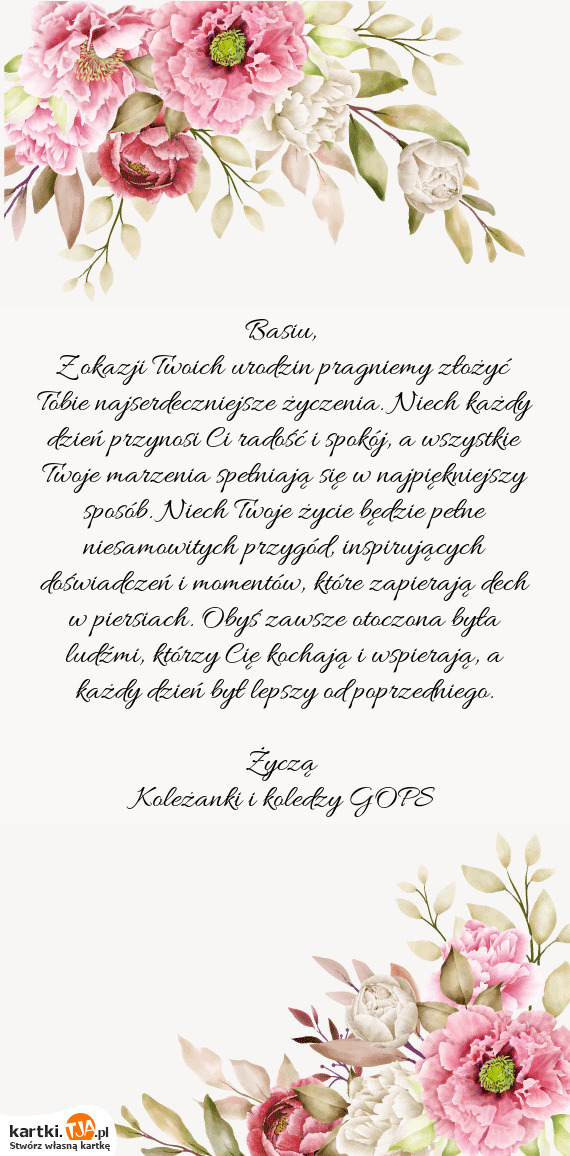 Basiu,
Z okazji Twoich urodzin pragniemy złożyć
Tobie najserdeczniejsze życzenia. Niech każdy
dzień przynosi Ci radość i spokój, a wszystkie
Twoje marzenia spełniają się w najpiękniejszy
sposób. Niech Twoje życie będzie pełne
niesamowitych przygód, inspirujących
doświadczeń i momentów, które zapierają dech
w piersiach. Obyś zawsze otoczona była
ludźmi, którzy Cię kochają i wspierają, a
każdy dzień był lepszy od poprzedniego.
Życzą
Koleżanki i koledzy GOPS
kartki.TJA.pl
Stwórz własną kartkę